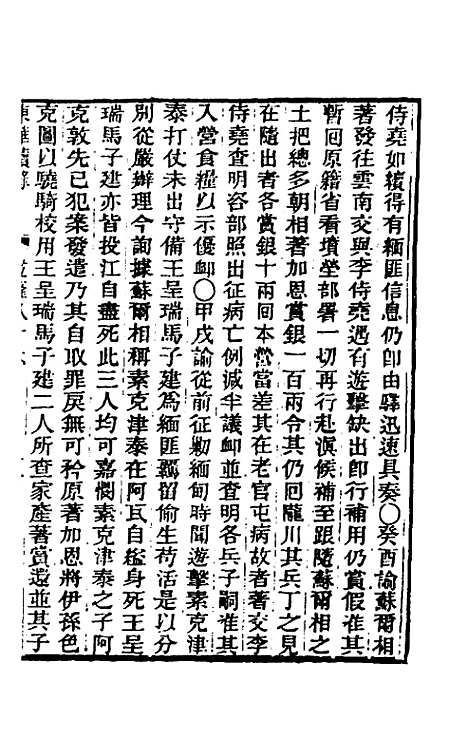 侍堯如續得有緬匪信息仍卽由驛迅速具奏〇癸酉諭蘇爾相
著發往雲南交與李侍堯遇有遊擊缺出卽行補用仍賞假在其
暫回原籍省看墳塋部署一切再行赴滇候補至跟隨蘇爾相之
土把總多朝相著加恩賞銀一百兩令其仍回隴川其兵丁之見
在隨出者各賞銀十兩回本營當差其在老官屯病故者著交李
侍堯查明容部照出征病亡例減半議卹並查明各兵子嗣准其
入營食糧以示優卹〇甲戌諭從前征勦緬甸時聞遊擊素克津
泰打仗未出守備王呈瑞馬子建為緬匪羈留偷生苟活是以分
別從嚴辦理今詢據蘇爾相稱素克津泰在阿瓦自縊身死王呈
瑞馬子建亦皆投江自盡死此三人均可嘉憫素克津泰之子阿
克敦先已犯案發遣乃其自取罪戾無可矜原著加恩將伊孫色
克圖以驍騎校用王呈瑞馬子建二人所查家產著賞還並其子